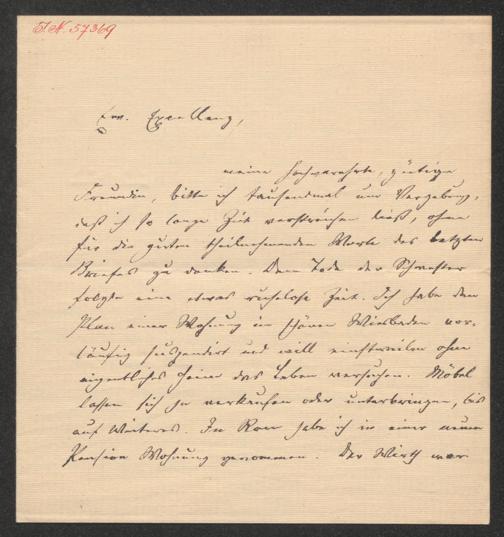 I.N. 57369
Ew. Excellenz,
meine hochverehrte, gütige
Freundin, bitte ich tausendmal um Vergebung,
daß ich so lange Zeit verstreichen ließ, ohne
für die guten theilnehmenden Worte des letzten
Briefes zu danken. Dem Tode der Schwester
folgte eine etwas ruhelose Zeit. Ich habe den
Plan einer Wohnung im schönen Wiesbaden vor-
läufig suspendirt und will einstweilen ohne
eigentliches Heim das Leben versuchen. Möbel
lassen sich ja verkaufen oder unterbringen, bis
auf Weiteres. In Rom habe ich in einer neuen
Pension Wohnung genommen. Der Wirth war